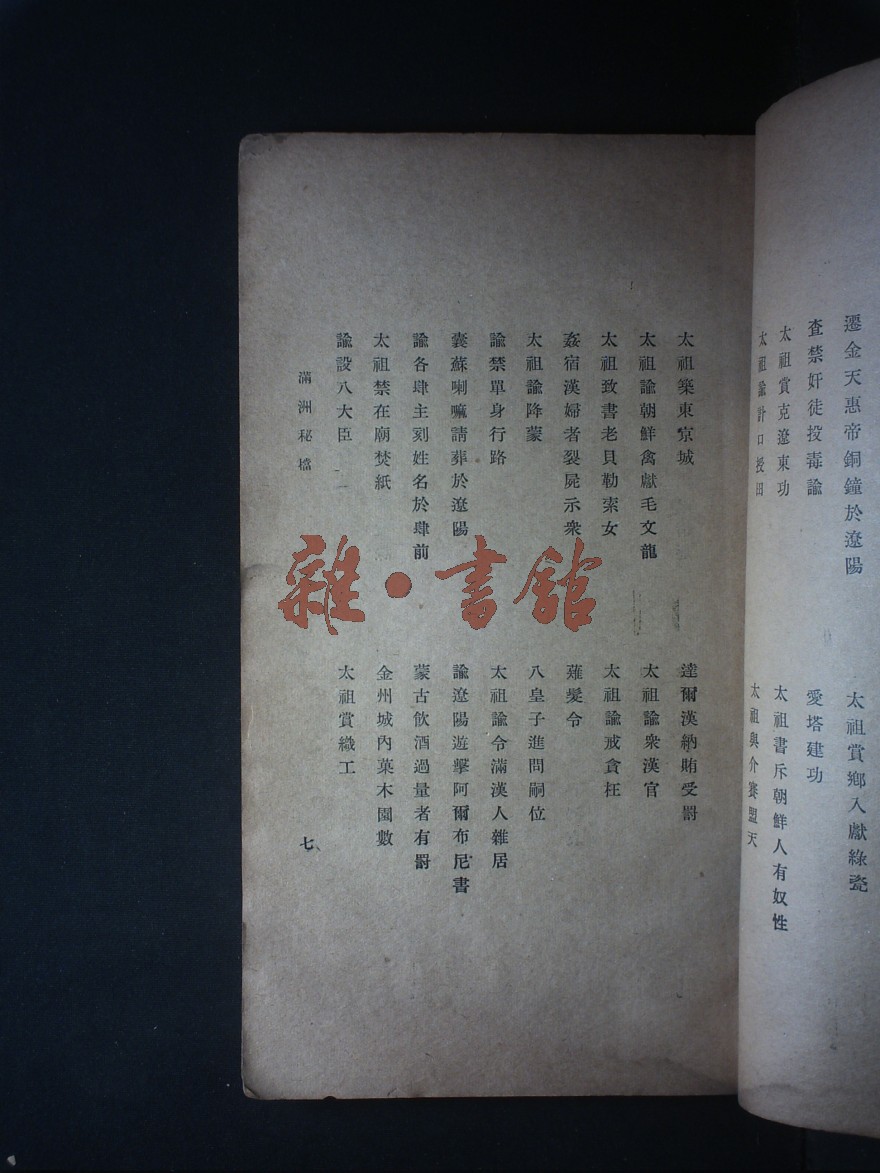 遷金天惠帝銅鐘於遼陽
太祖賞鄉人獻綠瓷
查禁奸徒投毒諭
愛塔建功
太祖賞克遼東功
太祖書斥朝鮮人有奴性
太祖諭計口授田
太祖與介賽盟天
太祖築東京城
達爾漢納賄受罰
太祖諭朝鮮禽獻毛文龍
太祖諭衆漢官
太祖致書老貝勒索女
太祖諭戒貪枉
姦宿漢婦者裂屍示衆
薙髮令
太祖諭降蒙
八皇子進問嗣位
諭禁單身行路
太祖諭令滿漢人雜居
囊蘇喇嘛請葬於遼陽
諭遼陽遊擊阿爾布尼書
諭各肆主刻姓名於肆前
蒙古飲酒過量者有罰
太祖禁在廟焚紙
金州城內菓木園數
諭設八大臣
太祖賞織工
滿洲秘檔
七
雜·書館